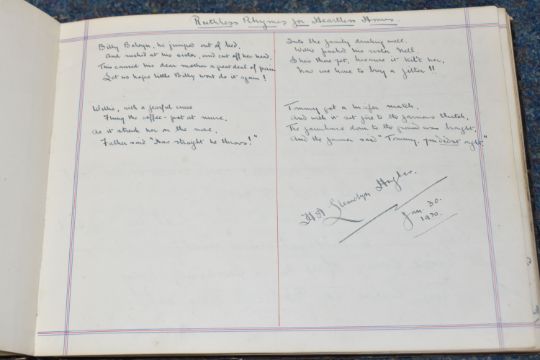 Ruthless Rhymes for Heartless Homes
Billy Belson, he jumped out of bed,
And rushed at his sister, and cut off her head,
This caused his dear mother a great deal of pain
Let us hope little Billy wont do it again!
Willie, with a fearful curse
Flung the coffee-pot at nurse,
As it struck her on the nose,
Father said "How straight he throws!"
Into the family drinking well
Willie pushed his sister Nell
She's there yet, because it kill'd her,
Now we have to buy a filter!!
Tommy got a lucifer match,
And with it set fire to the farmer's thatch,
The farmhouse down to the ground was burnt,
And the farmer said "Tommy, you right."
Llewelyn Hughes.
Jan. 30.
1930.